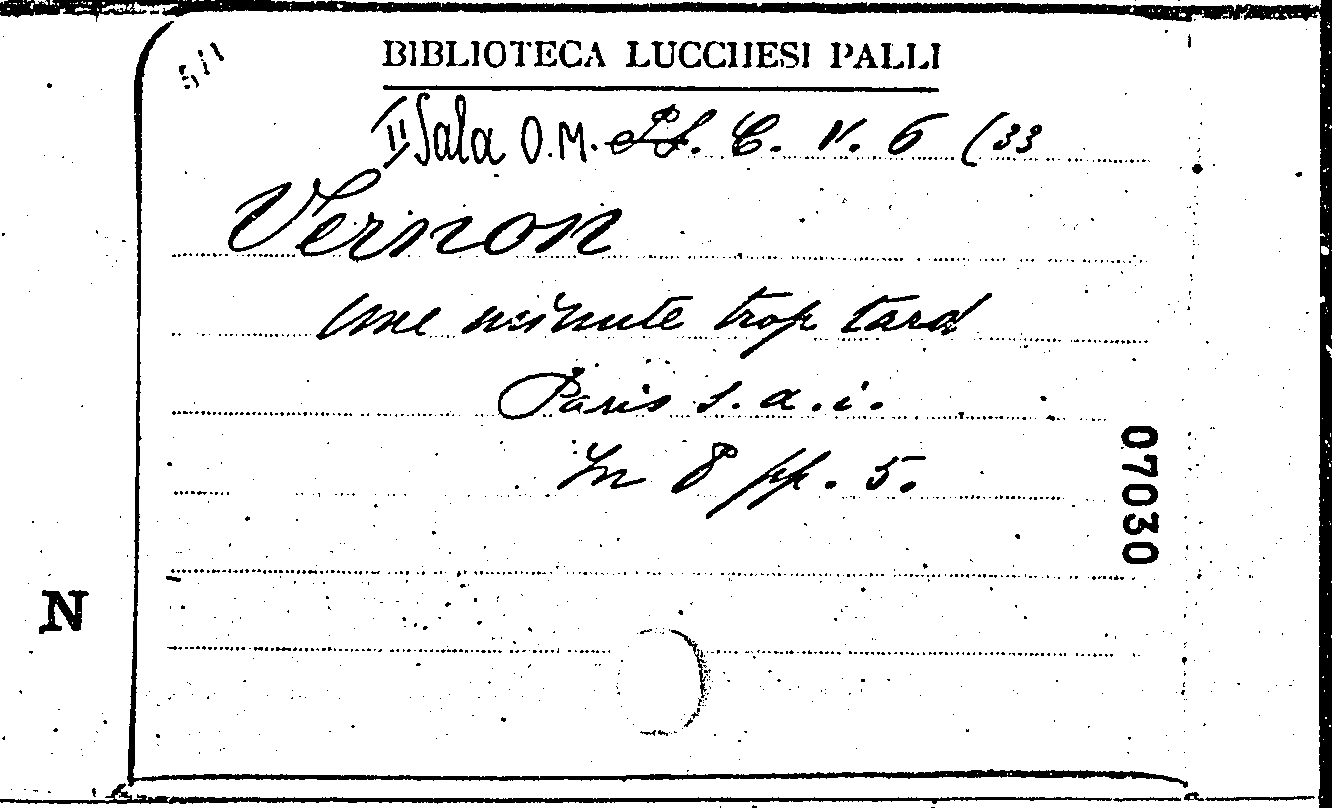 5/1
BIBLIOTECA LUCCHESI PALLI
II Sala O.M. C. V. 6 (33
Vernon
Une minute trop tard
Paris s. a. i.
In 8 pp. 5.
07030
N